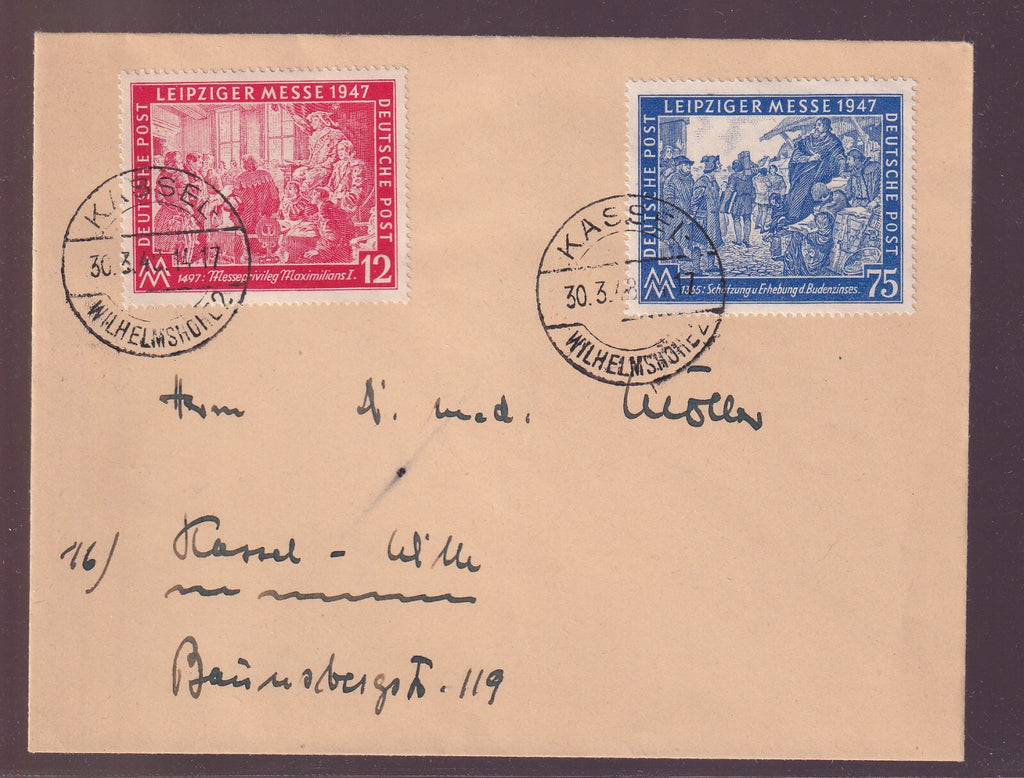 LEIPZIGER MESSE 1947
DEUTSCHE POST
DEUTSCHE POST
1497: Messeprivileg Maximilians I.
12
LEIPZIGER MESSE 1947
DEUTSCHE POST
DEUTSCHE POST
1365: Schätzung u Erhebung d. Budenzinses.
75
KASSEL
30.3.4 17
WILHELMSHÖHE 2
KASSEL
30.3.48 17
WILHELMSHÖHE 2
Herrn Dr. med. Möller
16) Kassel - Wilh
Baunsbergstr. 119